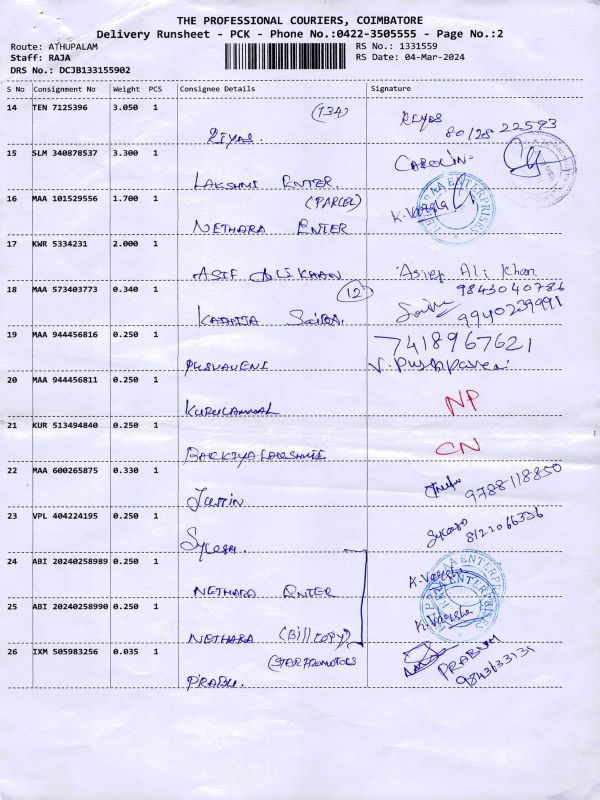 THE PROFESSIONAL COURIERS, COIMBATORE
Delivery Runsheet - PCK - Phone No.:0422-3505555 - Page No.:2
Route: ATHUPALAM
RS No.: 1331559
Staff: RAJA
RS Date: 04-Mar-2024
DRS No.: DCJB133155902
S No Consignment No Weight PCS Consignee Details Signature
14 TEN 7125396 3.050 1 (134) RIYAS
RIYAS. 22593
15 SLM 340878537 3.300 1 CAROLIN
LAKSHMI ENTER.
16 MAA 101529556 1.700 1 (PARCEL) K.Varsha
NETHARA ENTER
17 KWR 5334231 2.000 1
ASIF ALI KHAN Asief Ali Khan
18 MAA 573403773 0.340 1 (12) 9843040786
9940239991
19 MAA 944456816 0.250 1 7418967621
PUSHAVENI V. Pushpaveni
20 MAA 944456811 0.250 1 NP
21 KUR 513494840 0.250 1 CN
22 MAA 600265875 0.330 1 9788118850
JUSTIN
23 VPL 404224195 0.250 1 8122066336
24 ABI 20240258989 0.250 1 K.Varsha
NETHARA ENTER
25 ABI 20240258990 0.250 1 K.Varsha
NETHARA (Bill copy)
26 IXM 505983256 0.035 1 (STAR PROMOTORS PRABHU
PRABU.